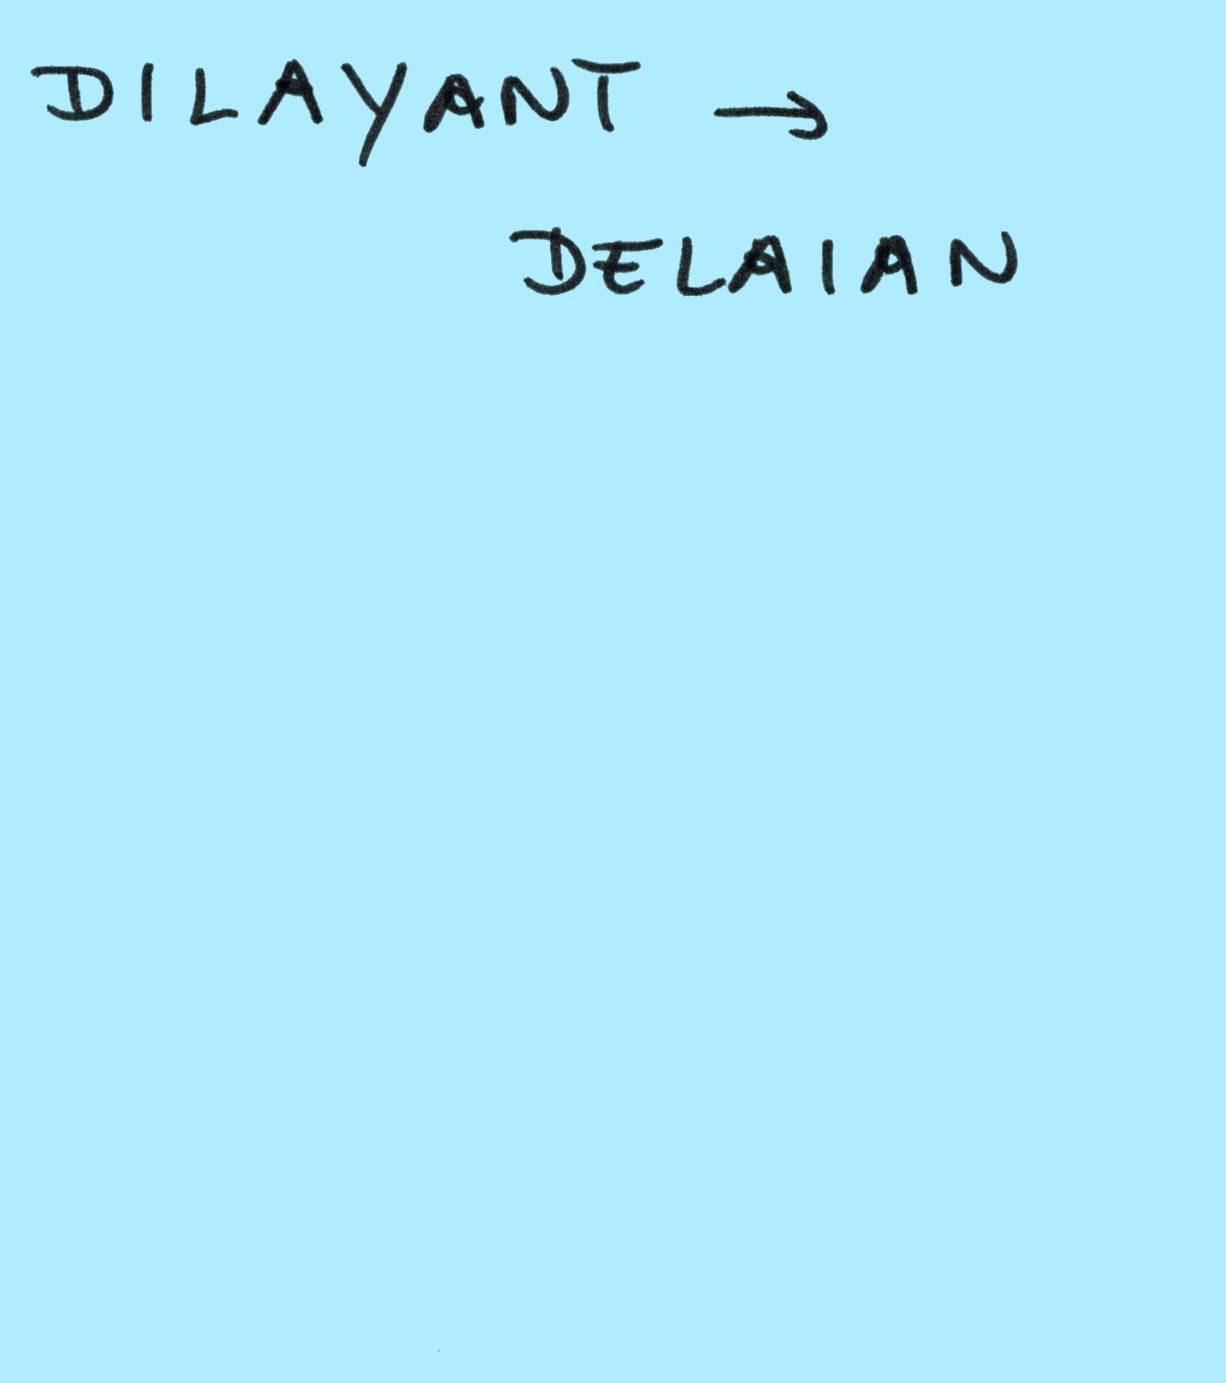 DILAYANT →
DELAIAN